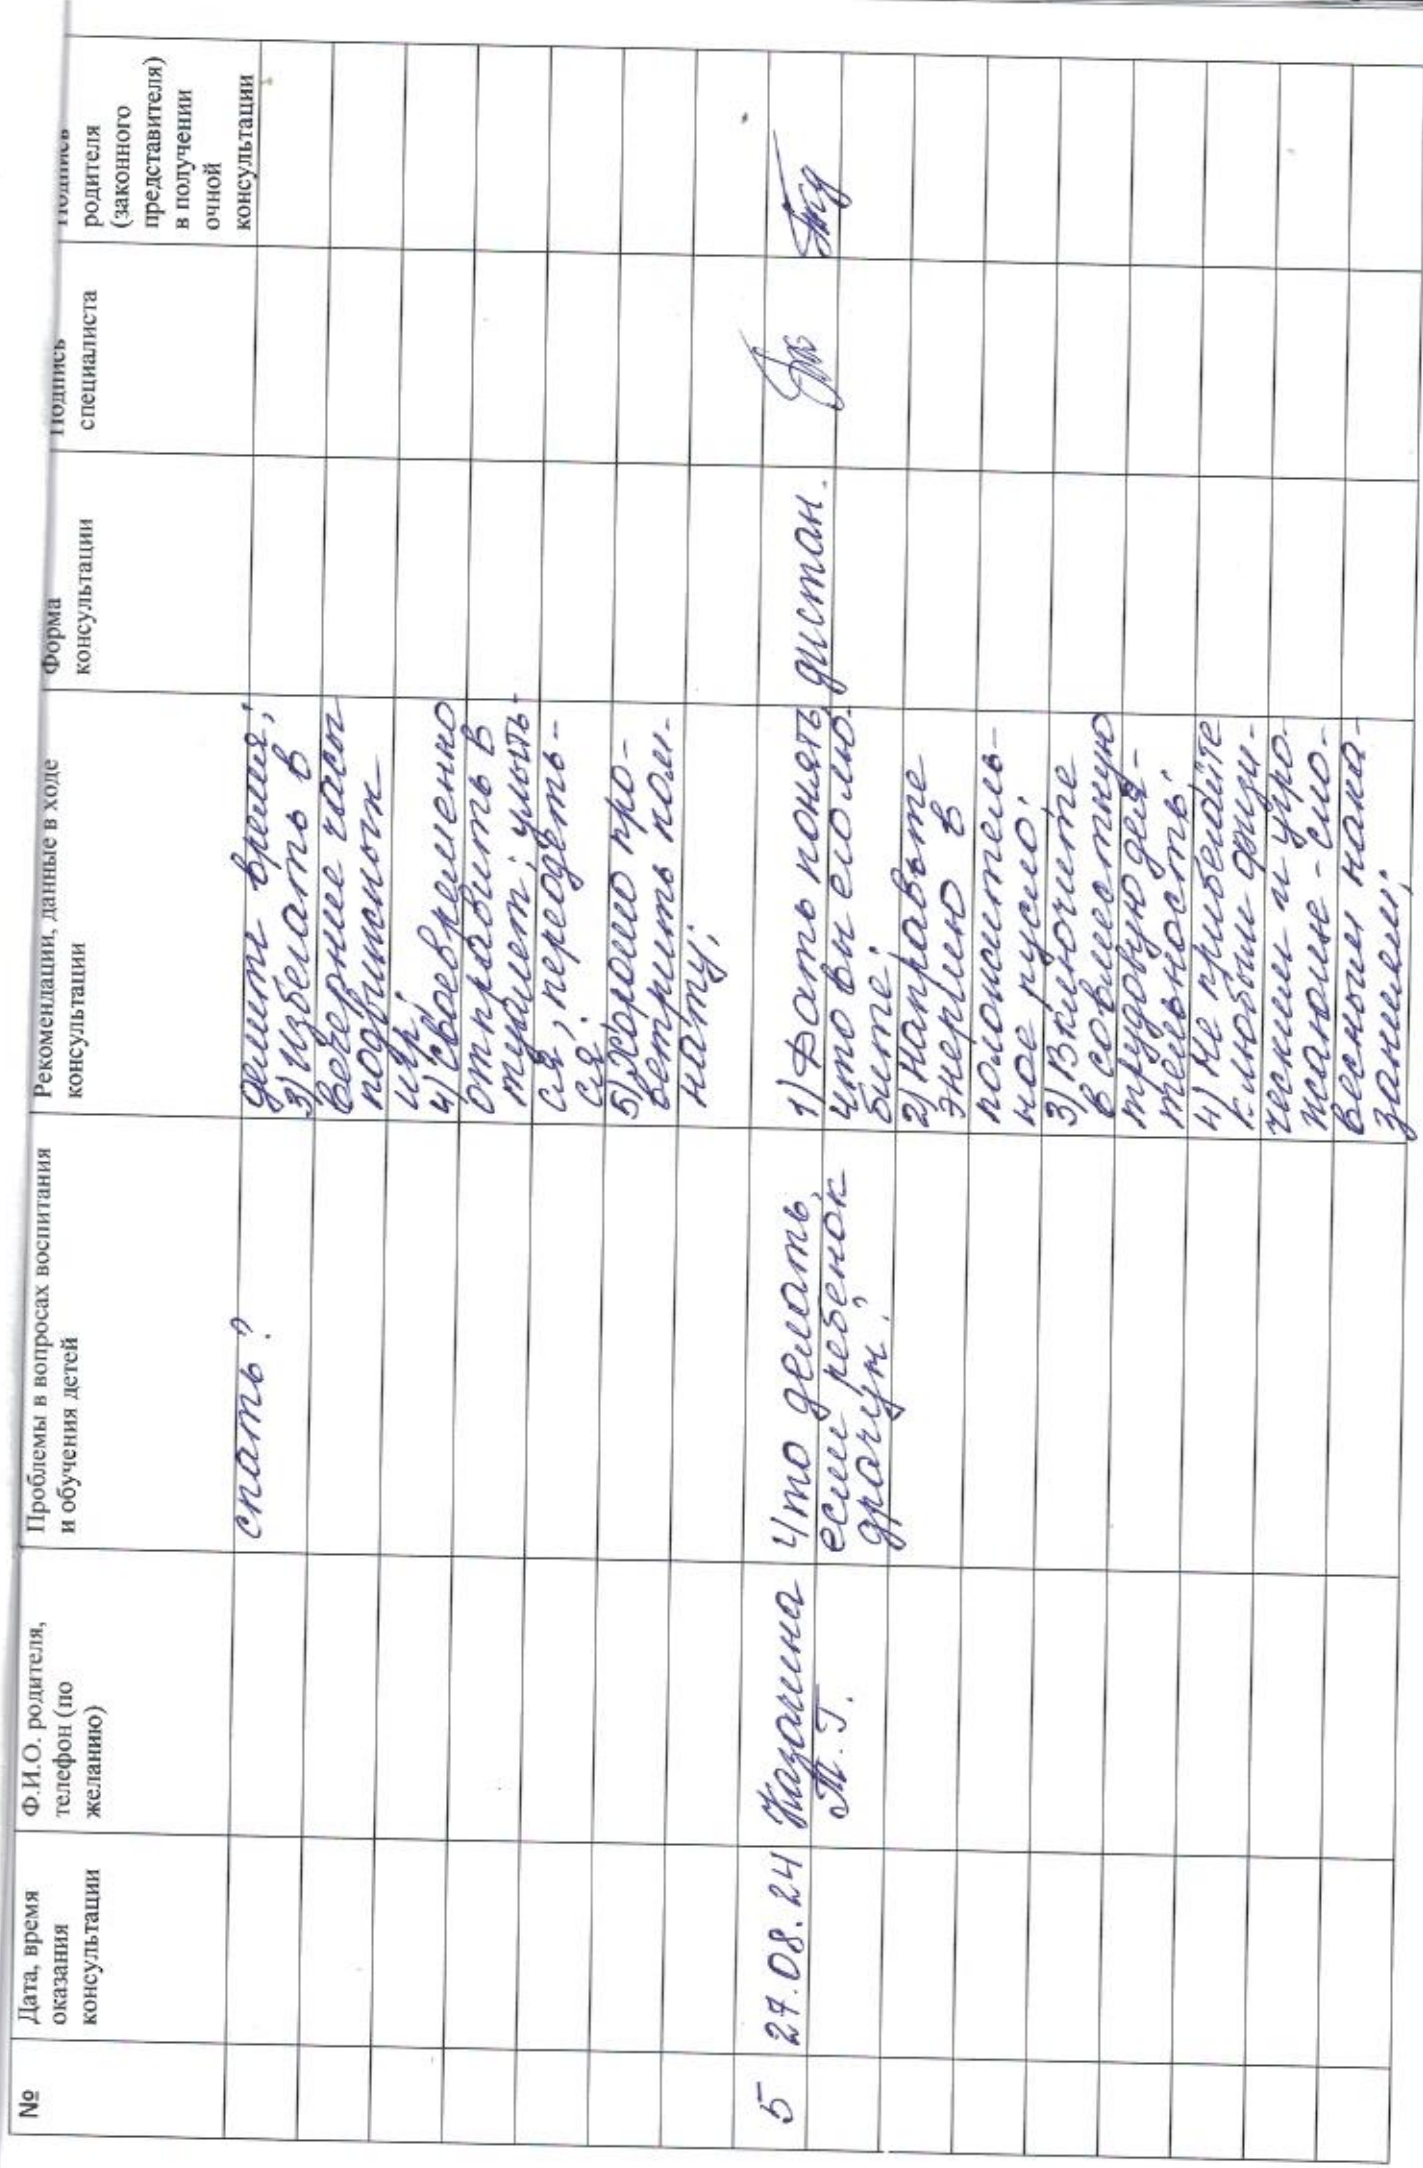 №
Дата, время
оказания
консультации
Ф.И.О. родителя,
телефон (по
желанию)
Проблемы в вопросах воспитания
и обучения детей
Рекомендации, данные в ходе
консультации
Форма
консультации
Подпись
специалиста
Подпись
родителя
(законного
представителя)
в получении
очной
консультации
спать?
делить время;
3) Избегать в
вечерние часы
подвижных
игр;
4) Своевременно
отправить в
туалет; умыть-
ся, переодеть-
ся;
5) Хорошо про-
ветрить ком-
нату;
5
27.08.24
Казачина
Т.Г.
Что делать,
если ребенок
драчун?
1) Дать понять,
что вы его лю-
бите;
2) Направьте
энергию в
положитель-
ное русло;
3) Включите
в совместную
трудовую дея-
тельность;
4) Не прибегайте
к любым физи-
ческим и угро-
жающие-сло-
весным нака-
заниям;
дистан.